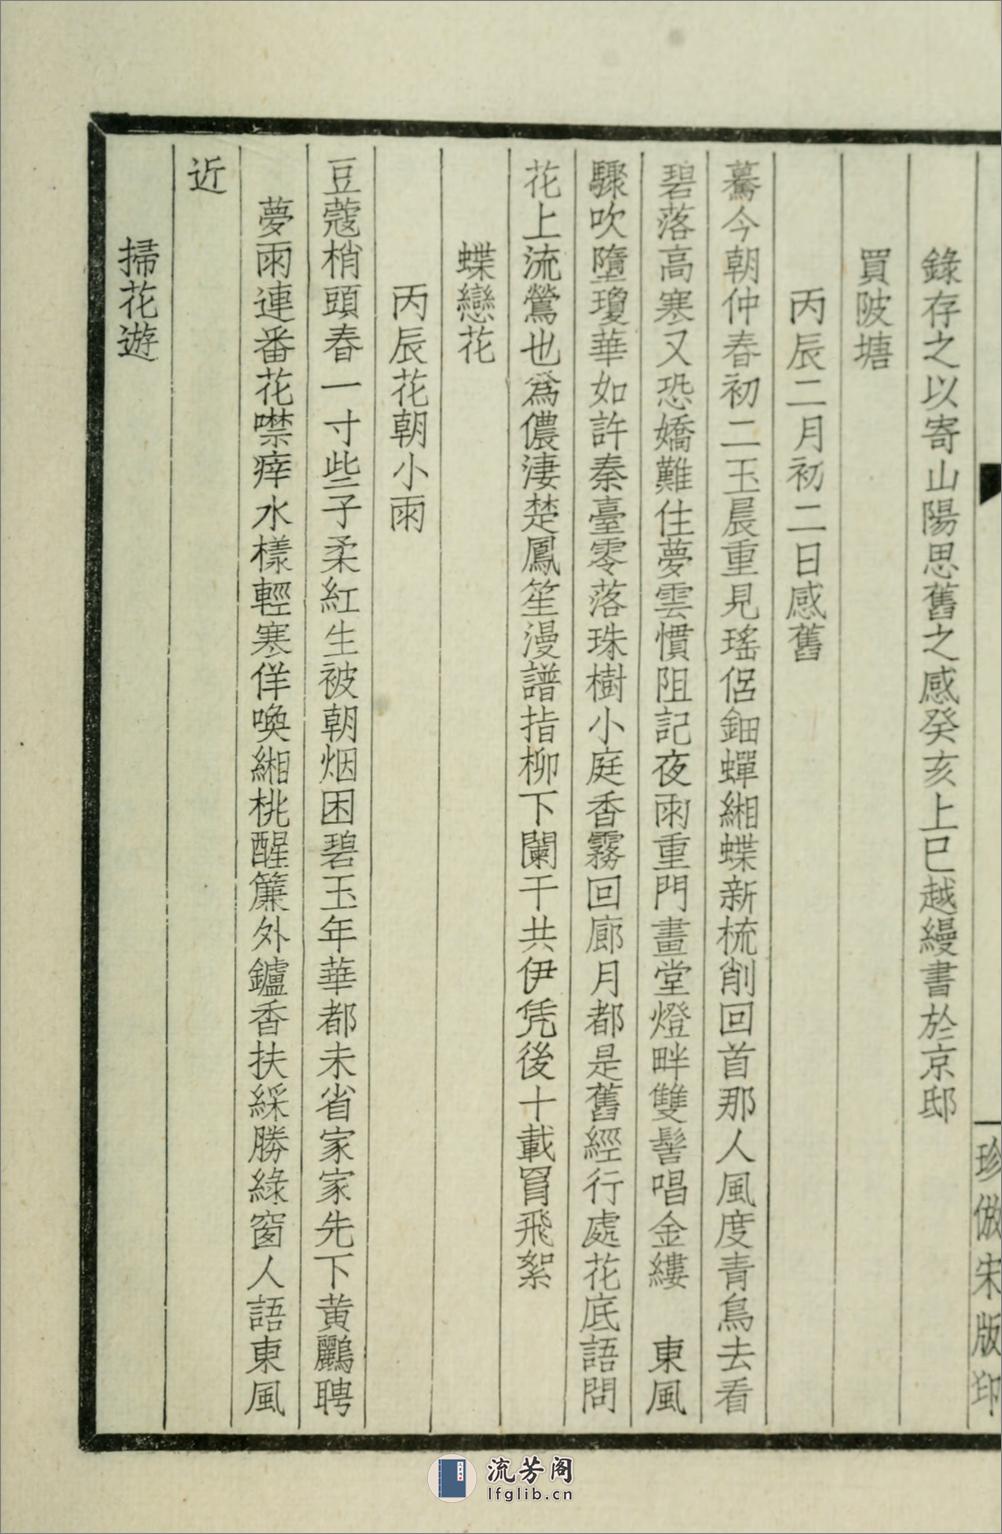 錄存之以寄山陽思舊之感癸亥上巳越縵書於京邸
買陂塘
丙辰二月初二日感舊
驀今朝仲春初二玉晨重見瑤侶鈿蟬緗蝶新梳削回首那人風度青鳥去看
碧落高寒又恐嬌難住夢雲慣阻記夜雨重門畫堂燈畔雙髻唱金縷　東風
驟吹墮瓊華如許秦臺零落珠樹小庭香霧回廊月都是舊經行處花底語問
花上流鶯也為儂淒楚鳳笙漫譜指柳下闌干共伊凭後十載罥飛絮
蝶戀花
丙辰花朝小雨
豆蔻梢頭春一寸些子柔紅生被朝烟困碧玉年華都未省家家先下黃鸝聘
夢雨連番花噤痒水樣輕寒佯喚緗桃醒簾外鑪香扶綵勝綠窗人語東風
近
掃花遊
珍倣宋版印
流芳阁
lfglib.cn